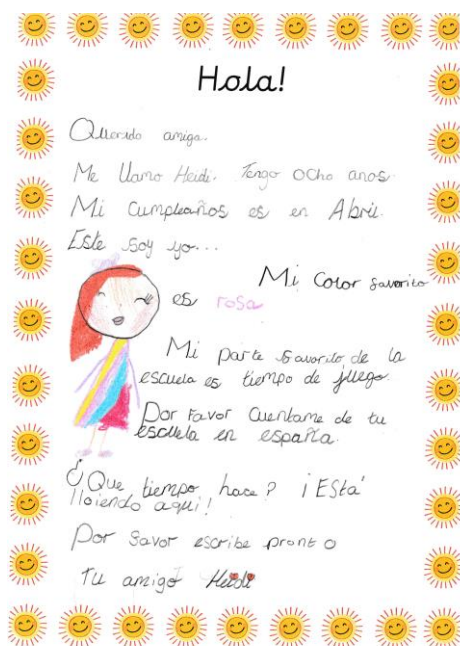 Hola!
Querido amiga.
Me llamo Heidi. Tengo ocho anos.
Mi cumpleaños es en Abril.
Este soy yo...
Mi color favorito
es rosa
Mi parte favorito de la
escuela es tiempo de juego.
Por favor cuentame de tu
escuela en españa.
¿Que tiempo hace? ¡Está
lloiendo aqui!
Por favor escribe pronto
Tu amigo Heidi